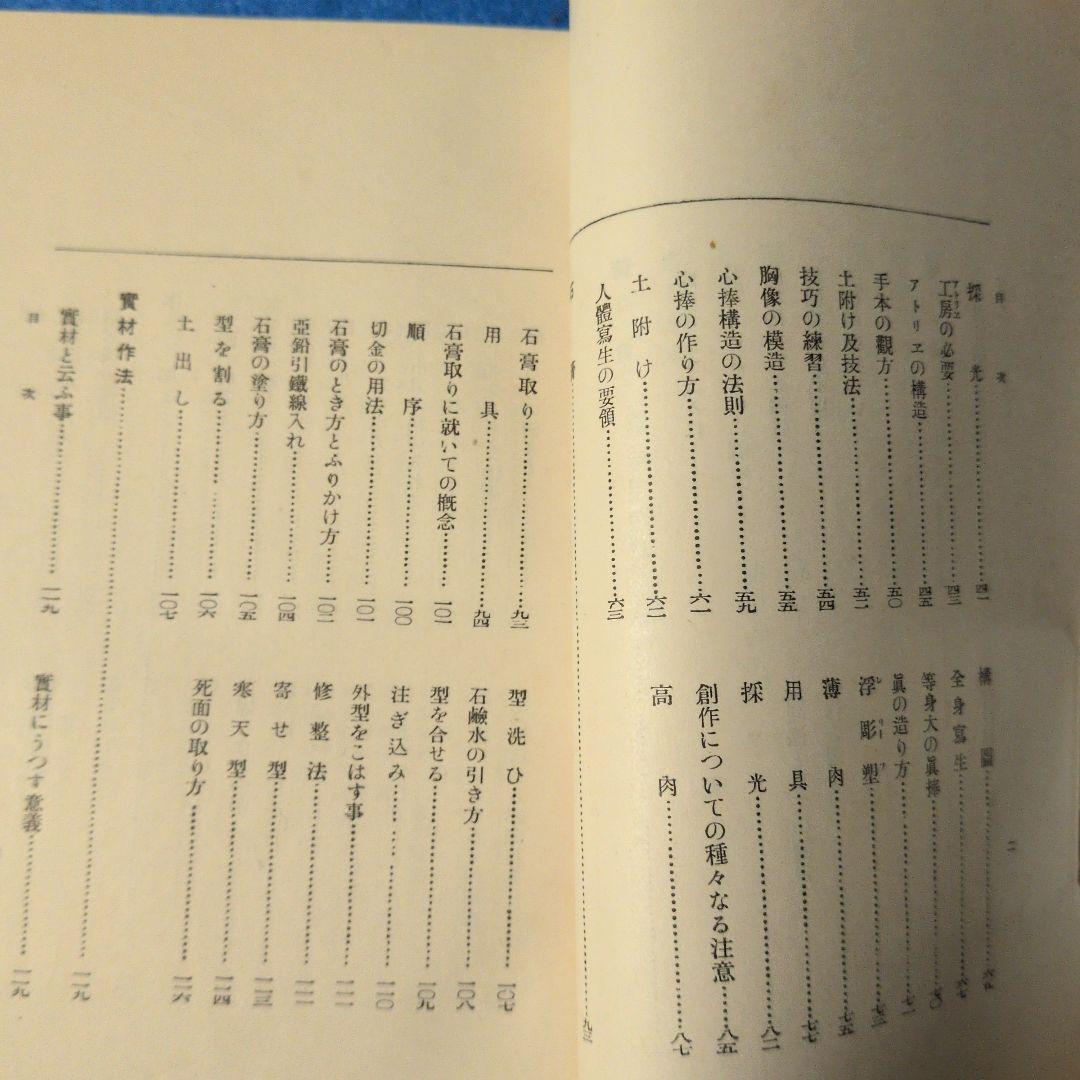 目次
二
採光……四一
工房の必要……四三
アトリエ
アトリエの構造……四五
手本の觀方……五〇
土附け及技法……五二
技巧の練習……五四
胸像の模造……五五
心捧構造の法則……五九
心捧の作り方……六一
土附け……六二
人體寫生の要領……六三
構圖
全身寫生……六七
等身大の眞捧……七〇
眞の造り方……七一
浮彫塑……七三
レリーフ
薄肉……七五
用具……七七
採光……八二
創作についての種々なる注意……八五
高肉……八七
……九三
石膏取り……九三
用具……九四
石膏取りに就いての槪念……一〇一
順序……一〇〇
切金の用法……一〇一
石膏のとき方とふりかけ方……一〇二
亞鉛引鐵線入れ……一〇四
石膏の塗り方……一〇五
型を割る……一〇六
土出し……一〇七
型洗ひ……一〇七
石鹼水の引き方……一〇八
型を合せる……一〇九
注ぎ込み……一一〇
外型をこはす事……一一一
修整法……一一一
寄せ型……一一三
寒天型……一一四
死面の取り方……一一六
實材作法……一一九
實材と云ふ事……一一九
實材にうつす意義……一一九
目次